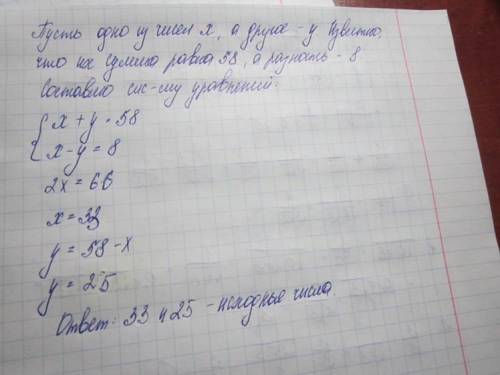 Пусть одно из чисел x, а другое - y. Известно,
что их сумма равна 58, а разность - 8
Составлю сис-му уравнений:
{ x + y = 58
{ x - y = 8
2x = 66
x = 33
y = 58 - x
y = 25
Ответ: 33 и 25 - исходные числа.